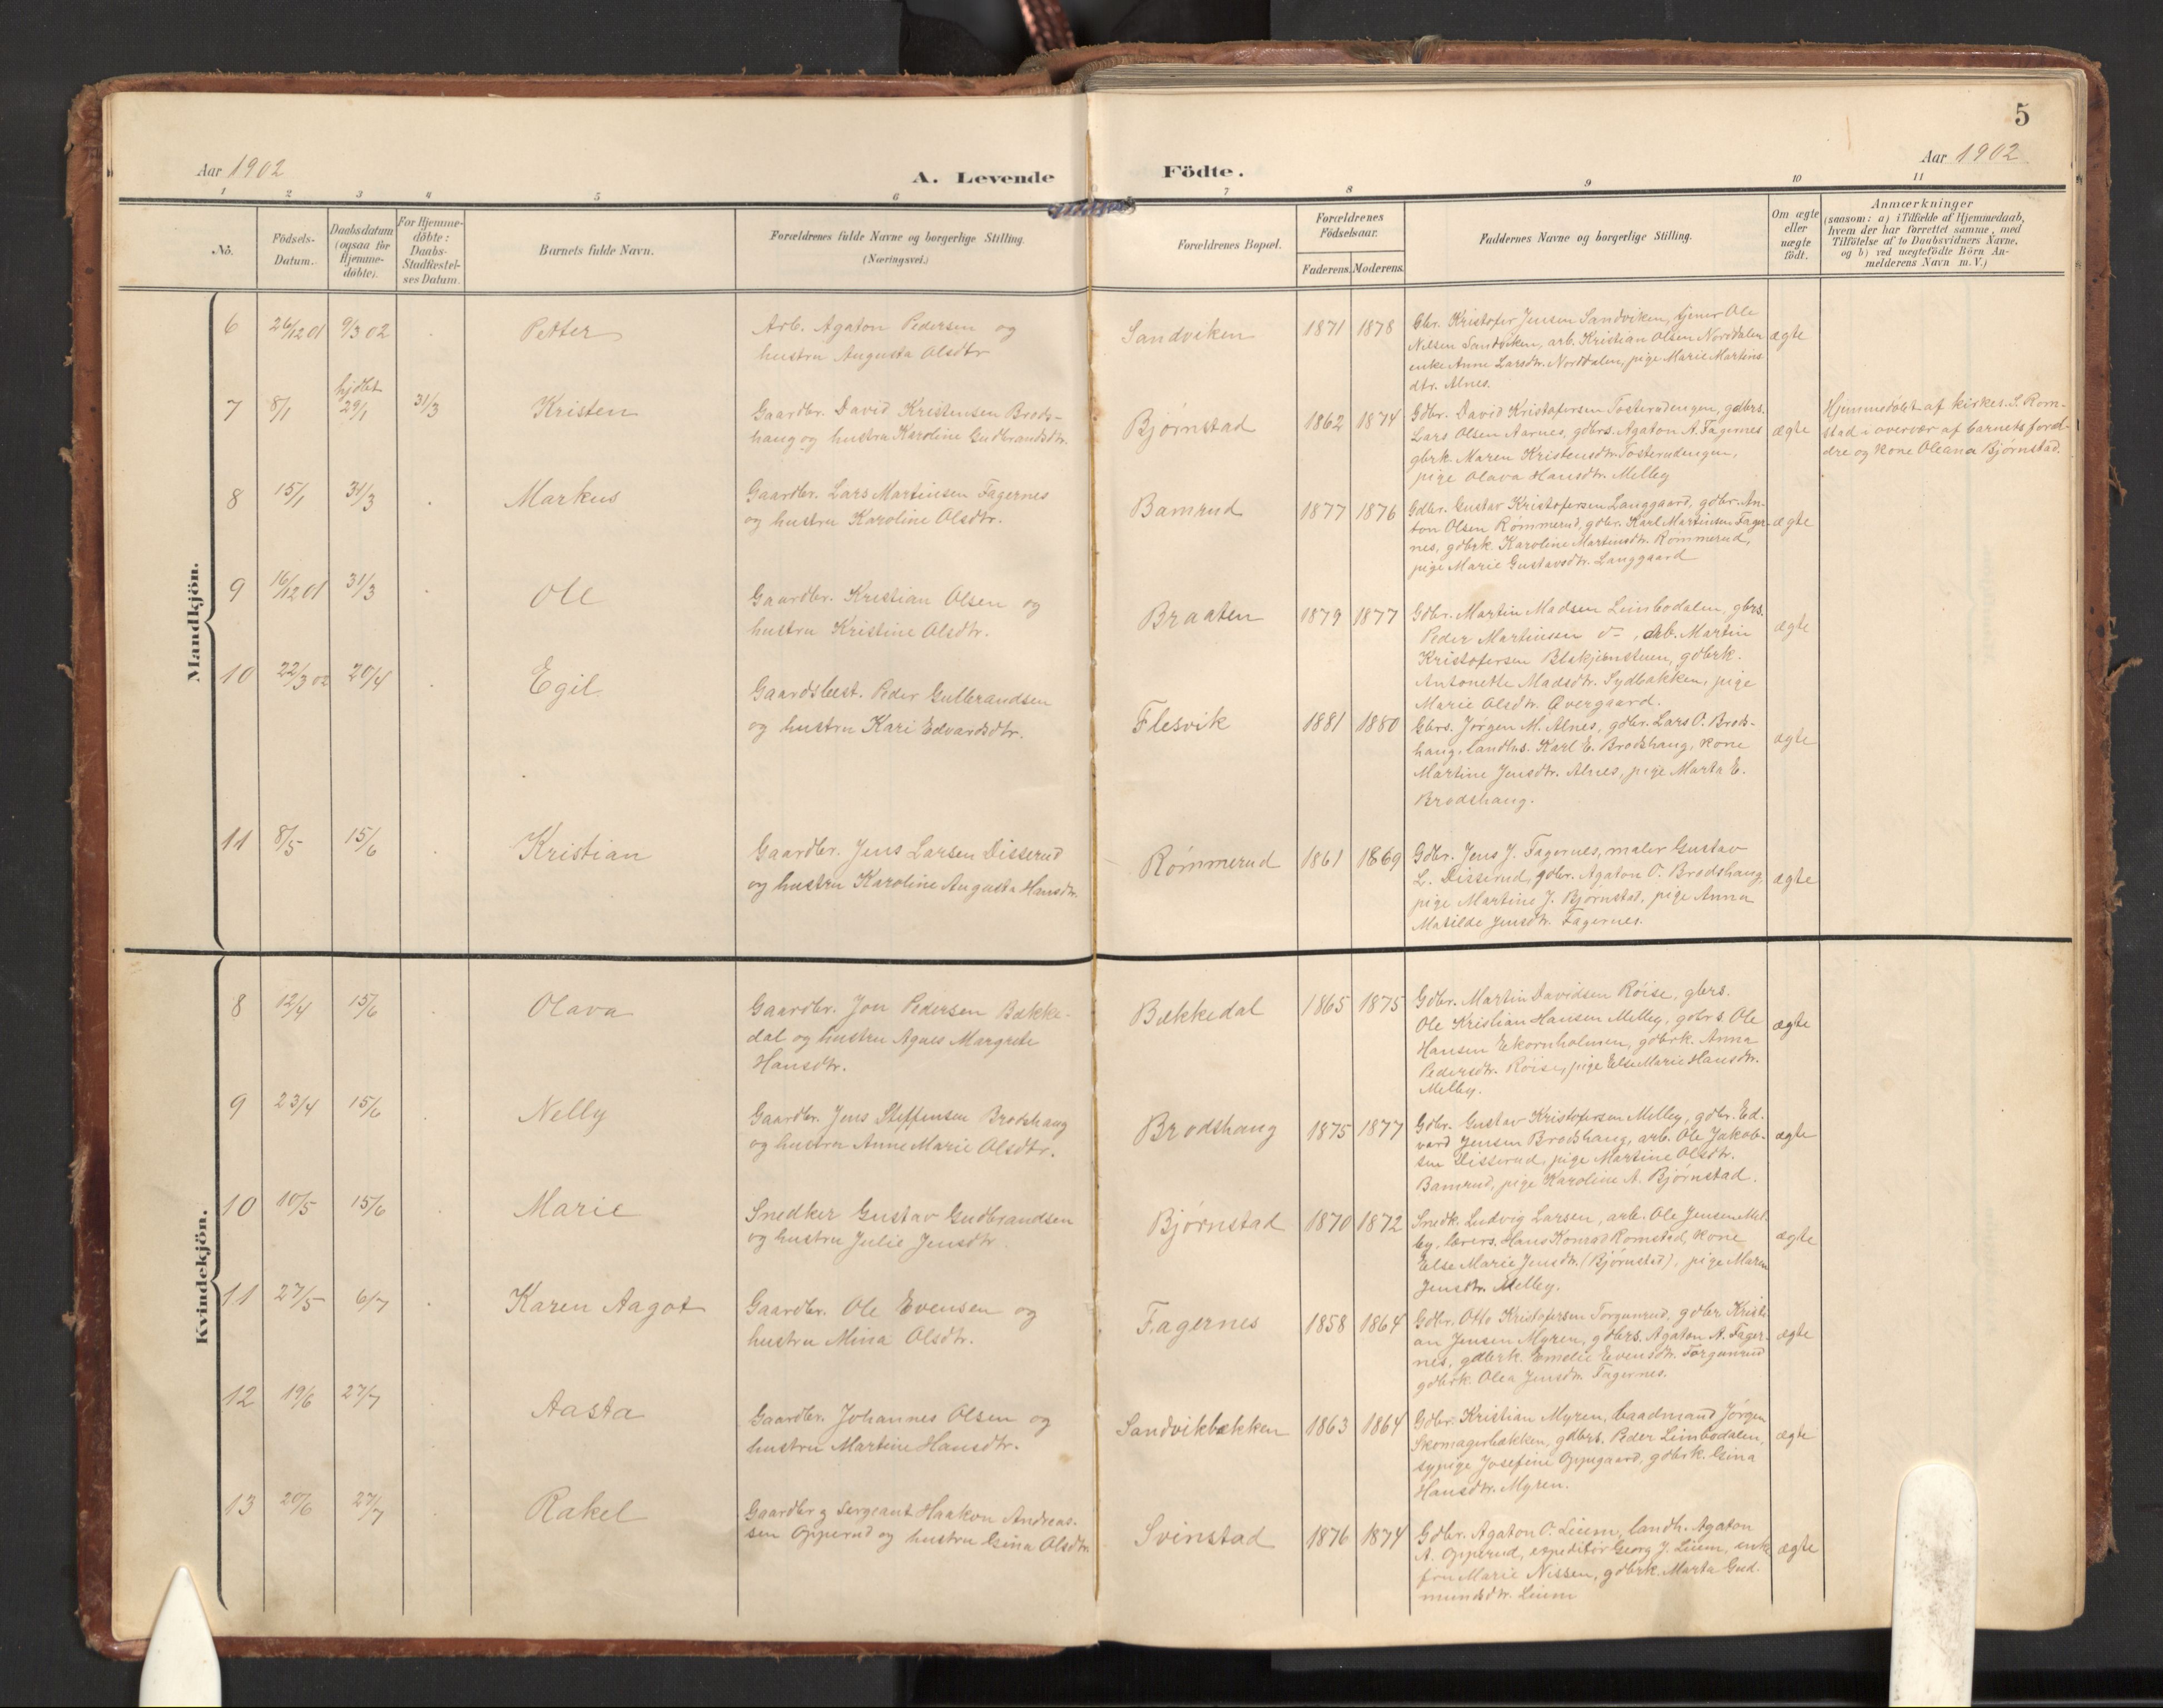 5
Aar 1902
A. Levende Födte.
Aar 1902.
1 2 3 4 5 6 7 8 9 10 11
No.
Födsels-
Datum.
Daabsdatum
(ogsaa for
Hjemme-
döbte).
For Hjemme-
döbte:
Daabs-
Stadfæstel-
ses Datum.
Barnets fulde Navn.
Forældrenes fulde Navne og borgerlige Stilling.
(Næringsvei.)
Forældrenes Bopæl.
Forældrenes
Födselsaar.
Faderens. Moderens.
Faddernes Navne og borgerlige Stilling.
Om ægte
eller
uægte
födt.
Anmærkninger
(saasom: a) i Tilfælde af Hjemmedaab,
hvem der har forrettet samme, med
Tilföielse af to Daabsvidners Navne,
og b) ved uægtefödte Börn An-
melderens Navn m. V.)
Mandkjön.
6 26/12 01 9/3 02 Petter
Arb. Agaton Pedersen og
hustru Augusta Olsdtr
Sandviken 1871 1878
Gbr. Kristofer Jensen Sandviken, tjener Ole
Nilsen Sandviken, arb. Kristian Olsen Norddalen
enke Anne Larsdtr. Norddalen, pige Marie Martins
dtr. Alnes.
ægte
7 8/1 hjdbt 29/1 31/3 Kristen
Gaardbr. David Kristensen Brods-
haug og hustru Karoline Gudbrandsdtr.
Bjørnstad 1862 1874
Gdbr. David Kristofersen Tosterudengen, gdbrs.
Lars Olsen Aarnes, gdbrs. Agaton A. Fagernes
gbrk. Maren Kristensdtr. Tosterudengen,
pige Olava Hansdtr. Melby
ægte
Hjemmedöbt af kirkes. S. Rom-
stad i overvær af barnets foræl-
dre og kone Oleana Bjørnstad.
8 15/1 31/3 Markus
Gaardbr. Lars Martinsen Fagernes
og hustru Karoline Olsdtr.
Bamrud 1877 1876
Gdbr. Gustav Kristofersen Langgaard, gdbr. An-
ton Olsen Rømmerud, gdbr. Karl Martinsen Fager-
nes, gdbrk. Karoline Martinsdtr. Rømmerud,
pige Marie Gustavsdtr. Langgaard
ægte
9 16/12 01 31/3 Ole
Gaardbr. Kristian Olsen og
hustru Kristine Olsdtr.
Braaten 1879 1877
Gdbr. Martin Madsen Limbodalen, gbrs.
Peder Martinsen d-, Arb. Martin
Kristofersen Blakjernstuen, gdbrk.
Antonette Madsdtr. Sydbakken, pige
Marie Olsdtr. Øvergaard.
ægte
10 22/3 02 20/4 Egil
Gaardsbest. Peder Gulbrandsen
og hustru Kari Edvardsdtr.
Flesvik 1881 1880
Gbrs. Jørgen M. Alnes, gdbr. Lars O. Brods-
haug, landhs. Karl E. Brodshaug, kone
Martine Jensdtr. Alnes, pige Marta E.
Brodshaug.
ægte
11 8/5 15/6 Kristian
Gaardbr. Jens Larsen Disserud
og hustru Karoline Augusta Hansdtr.
Rømmerud 1861 1869
Gdbr. Jens J. Fagernes, maler Gustav
L. Disserud, gdbr. Agaton O. Brodshaug,
pige Martine J. Bjørnstad, pige Anna
Matilde Jensdtr. Fagernes.
ægte
Kvindekjön.
8 12/4 15/6 Olava
Gaardbr. Jon Pedersen Bække-
dal og hustru Agnes Margrete
Hansdtr.
Bækkedal 1865 1875
Gdbr. Martin Davidsen Röise, gbrs.
Ole Kristian Hansen Melby, gdbrs. Ole
Hansen Ekornholmen, gdbrk. Anna
Pedersdtr. Röise, pige Else Marie Hansdtr.
Melby.
ægte
9 23/4 15/6 Nelly
Gaardbr. Jens Steffensen Brodshaug
og hustru Anne Marie Olsdtr.
Brodshaug 1875 1877
Gdbr. Gustav Kristofersen Melby, gdbr. Ed-
vard Jensen Brodshaug, arb. Ole Jakob-
sen Disserud, pige Martine Olsdtr.
Bamrud, pige Karoline A. Bjørnstad.
ægte
10 10/5 15/6 Marie
Snedker Gustav Gudbrandsen
og hustru Julie Jensdtr.
Bjørnstad 1870 1872
Snedk. Ludvig Larsen, arb. Ole Jensen Mel-
by, lærers. Hans Konrad Romstad, kone
Else Marie Jensdtr. (Bjørnstad), pige Maren
Jensdtr. Melby.
ægte
11 27/5 6/7 Karen Aagot
Gaardbr. Ole Evensen og
hustru Mina Olsdtr.
Fagernes 1858 1864
Gdbr. Otto Kristofersen Torgunrud, gdbr. Kristi-
an Jensen Myren, gdbrs. Agaton A. Fager-
nes, gdbrk. Emelie Evensdtr. Torgunrud
gdbrk. Olea Jensdtr. Fagernes.
ægte
12 19/6 27/7 Aasta
Gaardbr. Johannes Olsen og
hustru Martine Hansdtr.
Sandvikbækken 1863 1864
Gdbr. Kristian Myren, baadmand Jørgen
Skomagerbakken, gdbrs. Peder Limbodalen,
sypige Josefine Oppegaard, gdbrk. Gina
Hansdtr. Myren.
ægte
13 20/6 27/7 Rakel
Gaardbr og Sergeant Haakon Andreas-
sen Opperud og hustru Gina Olsdtr.
Svinstad 1876 1874
Gdbr. Agaton O. Lium, landh. Agaton
A. Opperud, expeditør Georg J. Lium, enke
fru Marie Nissen, gdbrk. Marta Gud-
mundsdtr. Lium
ægte